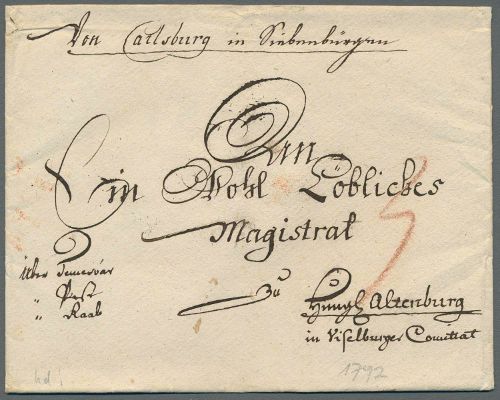 Von Carlsburg in Siebenbürgen
An
Ein Wohl Löbliches
Magistrat
über Temesvár
" Pest
" Raab
zu
Hung. Altenburg
in Viselburger Comitat
1792